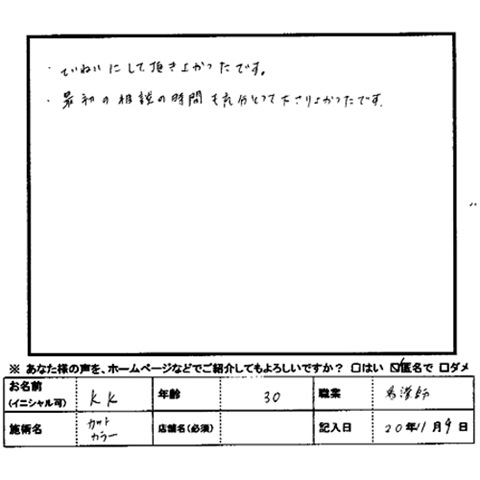 ・ていねいにして頂きよかったです。
・最初の相談の時間も充分とって下さりよかったです。
※ あなた様の声を、ホームページなどでご紹介してもよろしいですか？ □はい ☑匿名で □ダメ
お名前 (イニシャル可) KK 年齢 30 職業 看護師
施術名 カット カラー 店舗名(必須) 記入日 20年11月9日